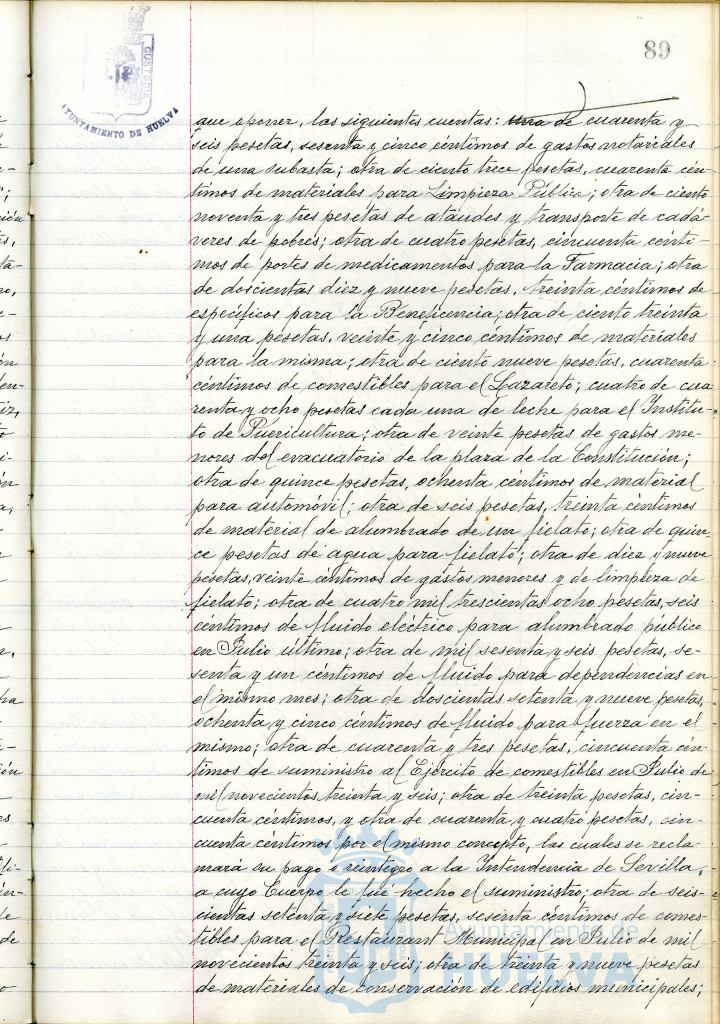 89
CUSTODIA
AYUNTAMIENTO DE HUELVA
que oponer, las siguientes cuentas: una de cuarenta y
seis pesetas, sesenta y cinco céntimos de gastos notariales
de una subasta; otra de ciento trece pesetas, cuarenta cén-
timos de materiales para Limpieza Pública; otra de ciento
noventa y tres pesetas de ataudes y transporte de cadá-
veres de pobres; otra de cuatro pesetas, cincuenta cénti-
mos de portes de medicamentos para la Farmacia; otra
de doscientas diez y nueve pesetas, treinta céntimos de
específicos para la Beneficencia; otra de ciento treinta
y una pesetas, veinte y cinco céntimos de materiales
para la misma; otra de ciento nueve pesetas, cuarenta
céntimos de comestibles para el Lazareto; cuatro de cua
renta y ocho pesetas cada una de leche para el Institu-
to de Puericultura; otra de veinte pesetas de gastos me-
nores del evacuatorio de la plaza de la Constitución;
otra de quince pesetas, ochenta céntimos de material
para automóvil; otra de seis pesetas, treinta céntimos
de material de alumbrado de un fielato; otra de quin-
ce pesetas de agua para fielato; otra de diez y nueve
pesetas, veinte céntimos de gastos menores y de limpieza de
fielato; otra de cuatro mil trescientas ocho pesetas, seis
céntimos de fluido eléctrico para alumbrado público
en Julio último; otra de mil sesenta y seis pesetas, se-
senta y un céntimos de fluido para dependencias en
el mismo mes; otra de doscientas setenta y nueve pesetas,
ochenta y cinco céntimos de fluido para fuerza en el
mismo; otra de cuarenta y tres pesetas, cincuenta cén-
timos de suministro al Ejército de comestibles en Julio de
mil novecientos treinta y seis; otra de treinta pesetas, cin-
cuenta céntimos, y otra de cuarenta y cuatro pesetas, cin-
cuenta céntimos por el mismo concepto, las cuales se recla-
mará su pago o reintegro a la Intendencia de Sevilla,
a cuyo Cuerpo le fué hecho el suministro; otra de seis-
cientas setenta y siete pesetas, sesenta céntimos de comes-
tibles para el Restaurant Municipal en Julio de mil
novecientos treinta y seis; otra de treinta y nueve pesetas
de materiales de conservación de edificios municipales;
Ayuntamiento de
HUELVA